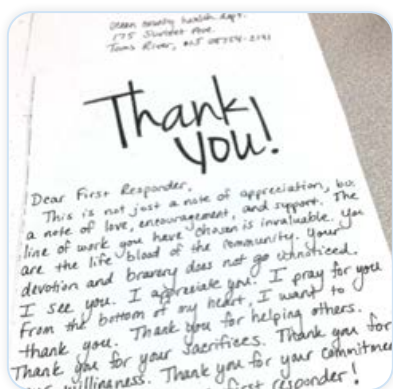 Ocean County Health Dept.
175 Sunset Ave
Toms River, NJ 08754-2191
Thank
You!
Dear First Responder,
This is not just a note of appreciation, but
a note of love, encouragement, and support. The
line of work you have chosen is invaluable. You
are the life blood of the community. Your
devotion and bravery does not go unnoticed.
I see you. I appreciate you. I pray for you
From the bottom of my heart, I want to
thank you. Thank you for helping others.
Thank you for your sacrifices. Thank you for
willingness. Thank you for your commitme
first responder!